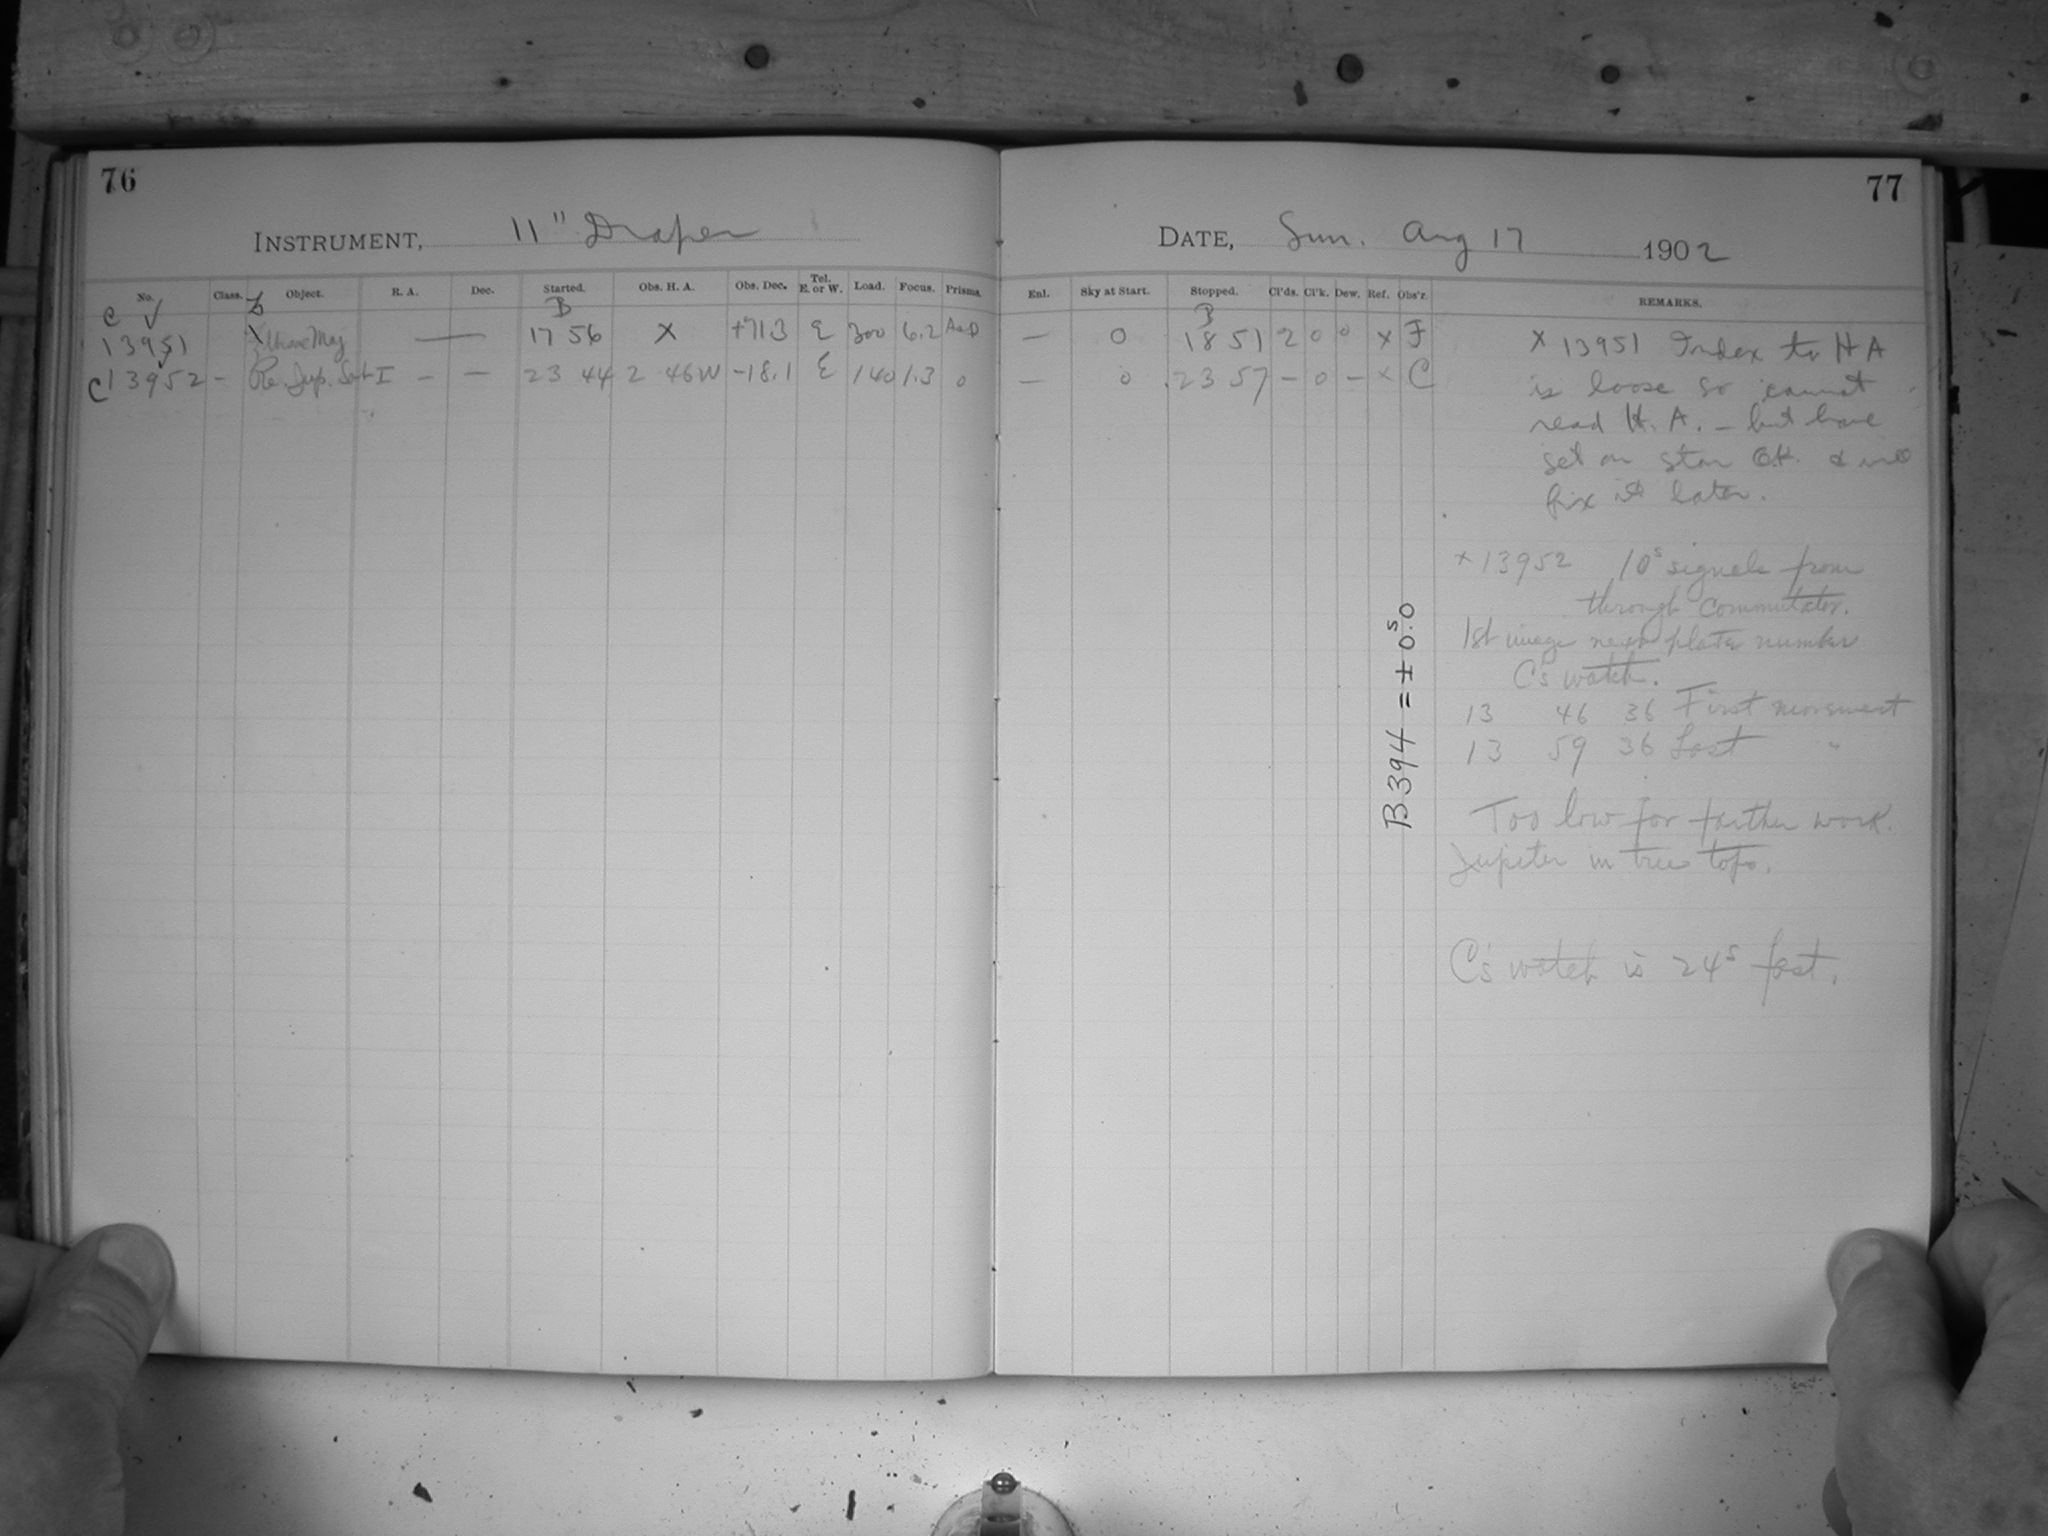 76
INSTRUMENT, 11" Draper
No. Class. Object. R. A. Dec. Started. Obs. H. A. Obs. Dec. Tel. E. or W. Load. Focus. Prisms.
C B
13951 Ursae Maj — 17 56 X +71.3 E 300 6.2
C13952 - Re. Jup. Sat I - - 23 44 2 46W -18.1 E 140 1.3 0
77
DATE, Sun. Aug 17 1902
Enl. Sky at Start. Stopped. Cl'ds. Cl'k. Dew. Ref. Obs'r. REMARKS.
B
— 0 18 51 2 0 0 x F
— 0 23 57 - 0 - x C
x 13951 Index to H A
is loose so cannot
read H. A. – but have
set on star O.K. &
fix it later.
x 13952 10s signals from
through commutator.
1st image near plate number
C's watch.
13 46 36 First movement
13 59 36 Last "
Too low for farther work.
Jupiter in tree tops.
C's watch is 24s fast.
B394 = ±0s.0